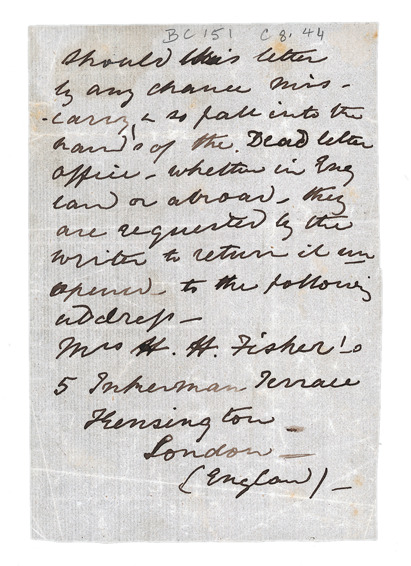 BC 151 C 8. 44
Should this letter
by any chance mis-
-carry, & so fall into the
hands of the Dead letter
office - whether in Eng
land or abroad - they
are requested by the
writer to return it un
opened to the following
address -
Mrs H. H. Fisher's
5 Inkerman Terrace
Kensington -
London -
(England) -